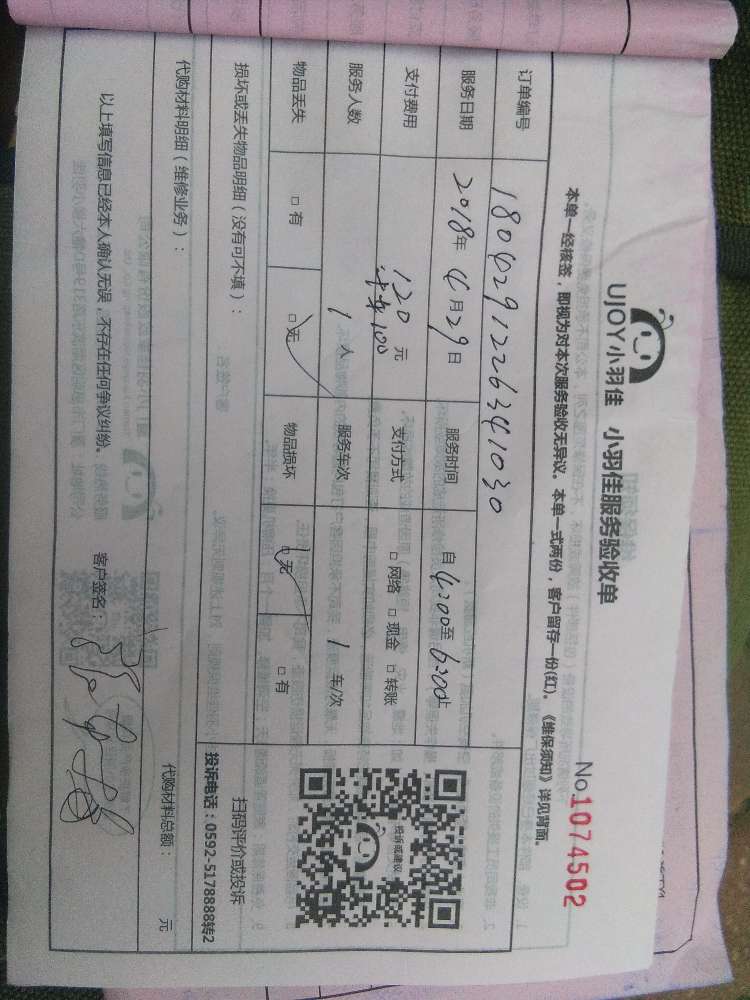 UJOY小羽佳 小羽佳服务验收单
No.1074502
本单一经核签，即视为对本次服务验收无异议。本单一式两份，客户留存一份(红)。《维保须知》详见背面。
订单编号 1804291226341030
服务日期 2018年 4月29日 服务时间 自4:00至6:00止
支付费用 120元 支付方式 □网络 □现金 □转账
100
服务人数 1人 服务车次 1车/次
物品丢失 □有 □无 物品损坏 □无 □有
投诉或建议
损坏或丢失物品明细（没有可不填）：
扫码评价或投诉
投诉电话：0592-5178888转2
代购材料明细（维修业务）：
代购材料总额： 元
以上填写信息已经本人确认无误，不存在任何争议纠纷。 客户签名：